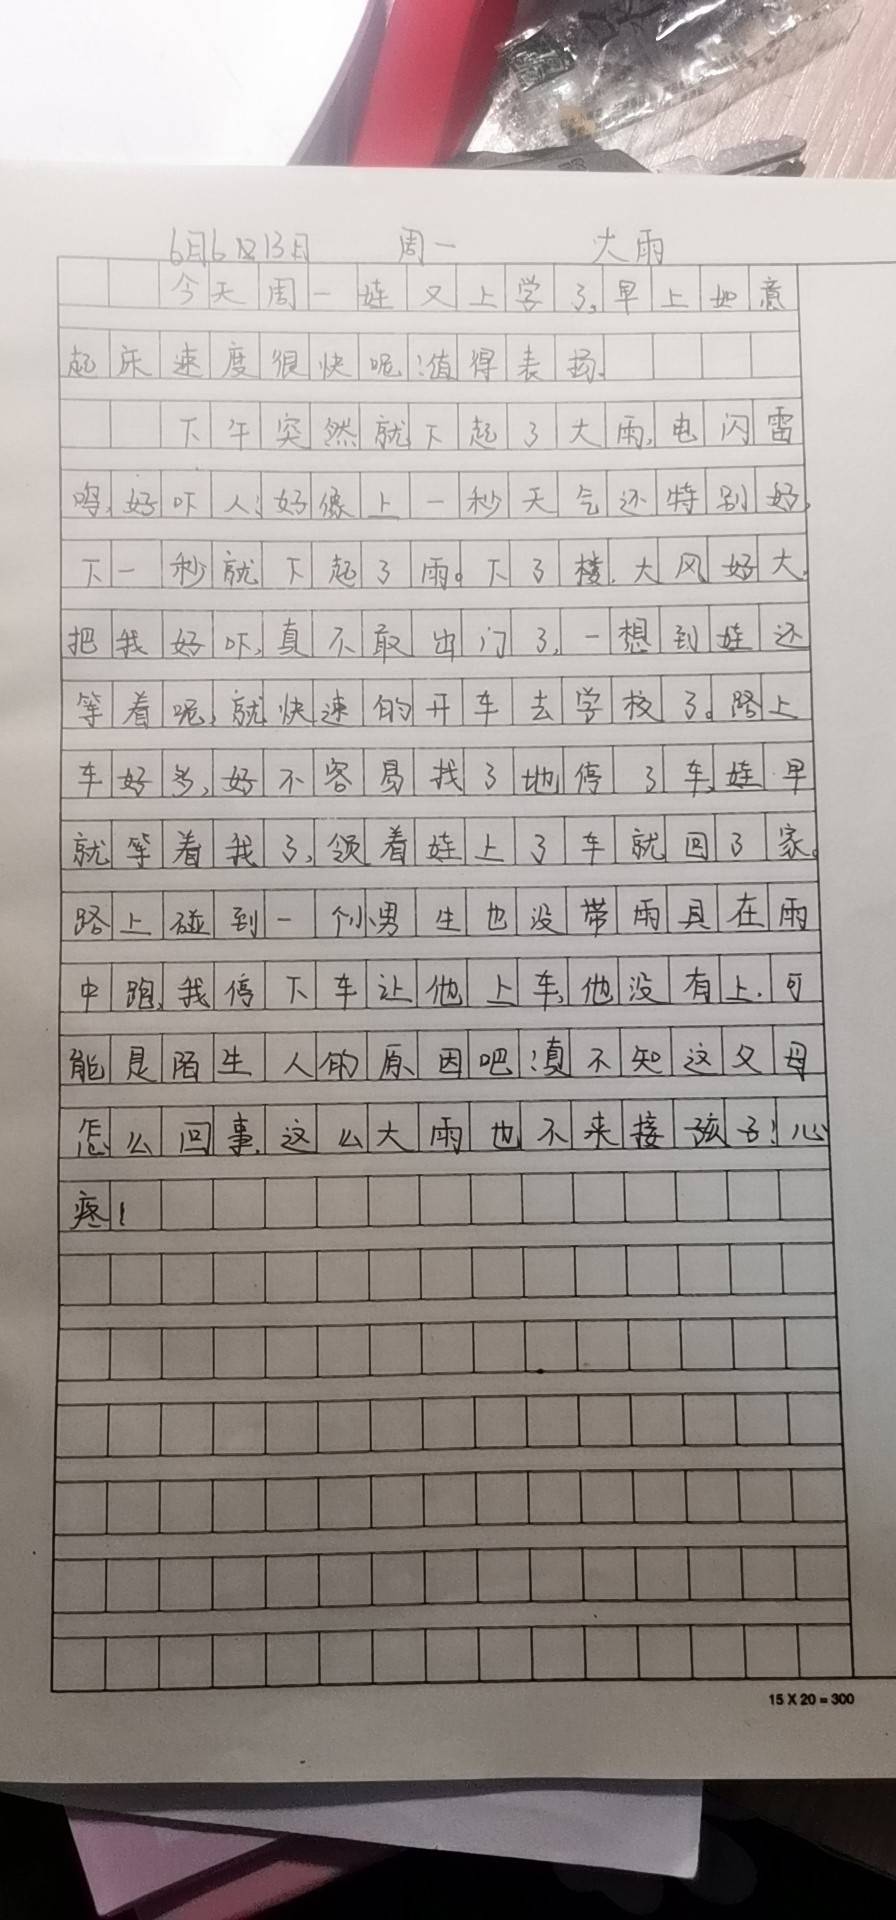 6月13日 周一 大雨
今天周一娃又上学了,早上如意
起床速度很快呢!值得表扬.
下午突然就下起了大雨,电闪雷
鸣,好吓人!好像上一秒天气还特别好,
下一秒就下起了雨。下了楼.大风好大,
把我好吓,真不敢出门了,一想到娃还
等着呢,就快速的开车去学校了。路上
车好多,好不容易找了地停了车,娃早
就等着我了,领着娃上了车就回了家。
路上碰到一个小男生也没带雨具在雨
中跑,我停下车让他上车,他没有上.可
能是陌生人的原因吧!真不知这父母
怎么回事.这么大雨也不来接孩子!心
疼!
15 X 20 = 300